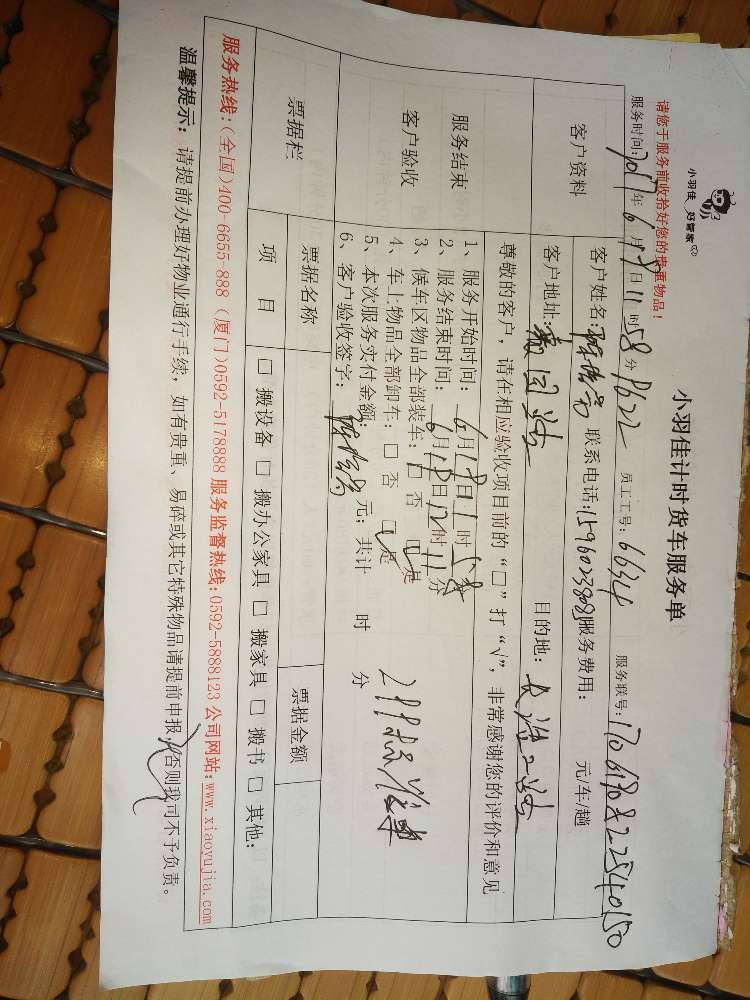 小羽佳 好管家
小羽佳计时货车服务单
请您于服务前收拾好您的贵重物品！
服务时间：2017年6月18日11时58分 P622 员工工号：6634 服务联号：
客户资料
客户姓名： 联系电话：15960238083 服务费用： 元/车/趟
客户地址： 目的地：
尊敬的客户，请在相应验收项目前的“□”打“√”，非常感谢您的评价和意见
服务结束
客户验收
1、服务开始时间：6月18日 时58分
2、服务结束时间：6月18日12时11分
3、候车区物品全部装车：□ 否 □ 是
4、车上物品全部卸车：□ 否 □ 是
5、本次服务实付金额： 元；共计 时 分
6、客户验收签字：
票据栏 票据名称 票据金额
项 目 □ 搬设备 □ 搬办公家具 □ 搬家具 □ 搬书 □ 其他：
服务热线：(全国)400-6655-888 (厦门)0592-5178888 服务监督热线：0592-5888123 公司网站：www.xiaoyujia.com
温馨提示：请提前办理好物业通行手续，如有贵重、易碎或其它特殊物品请提前申报，否则我司不予负责。